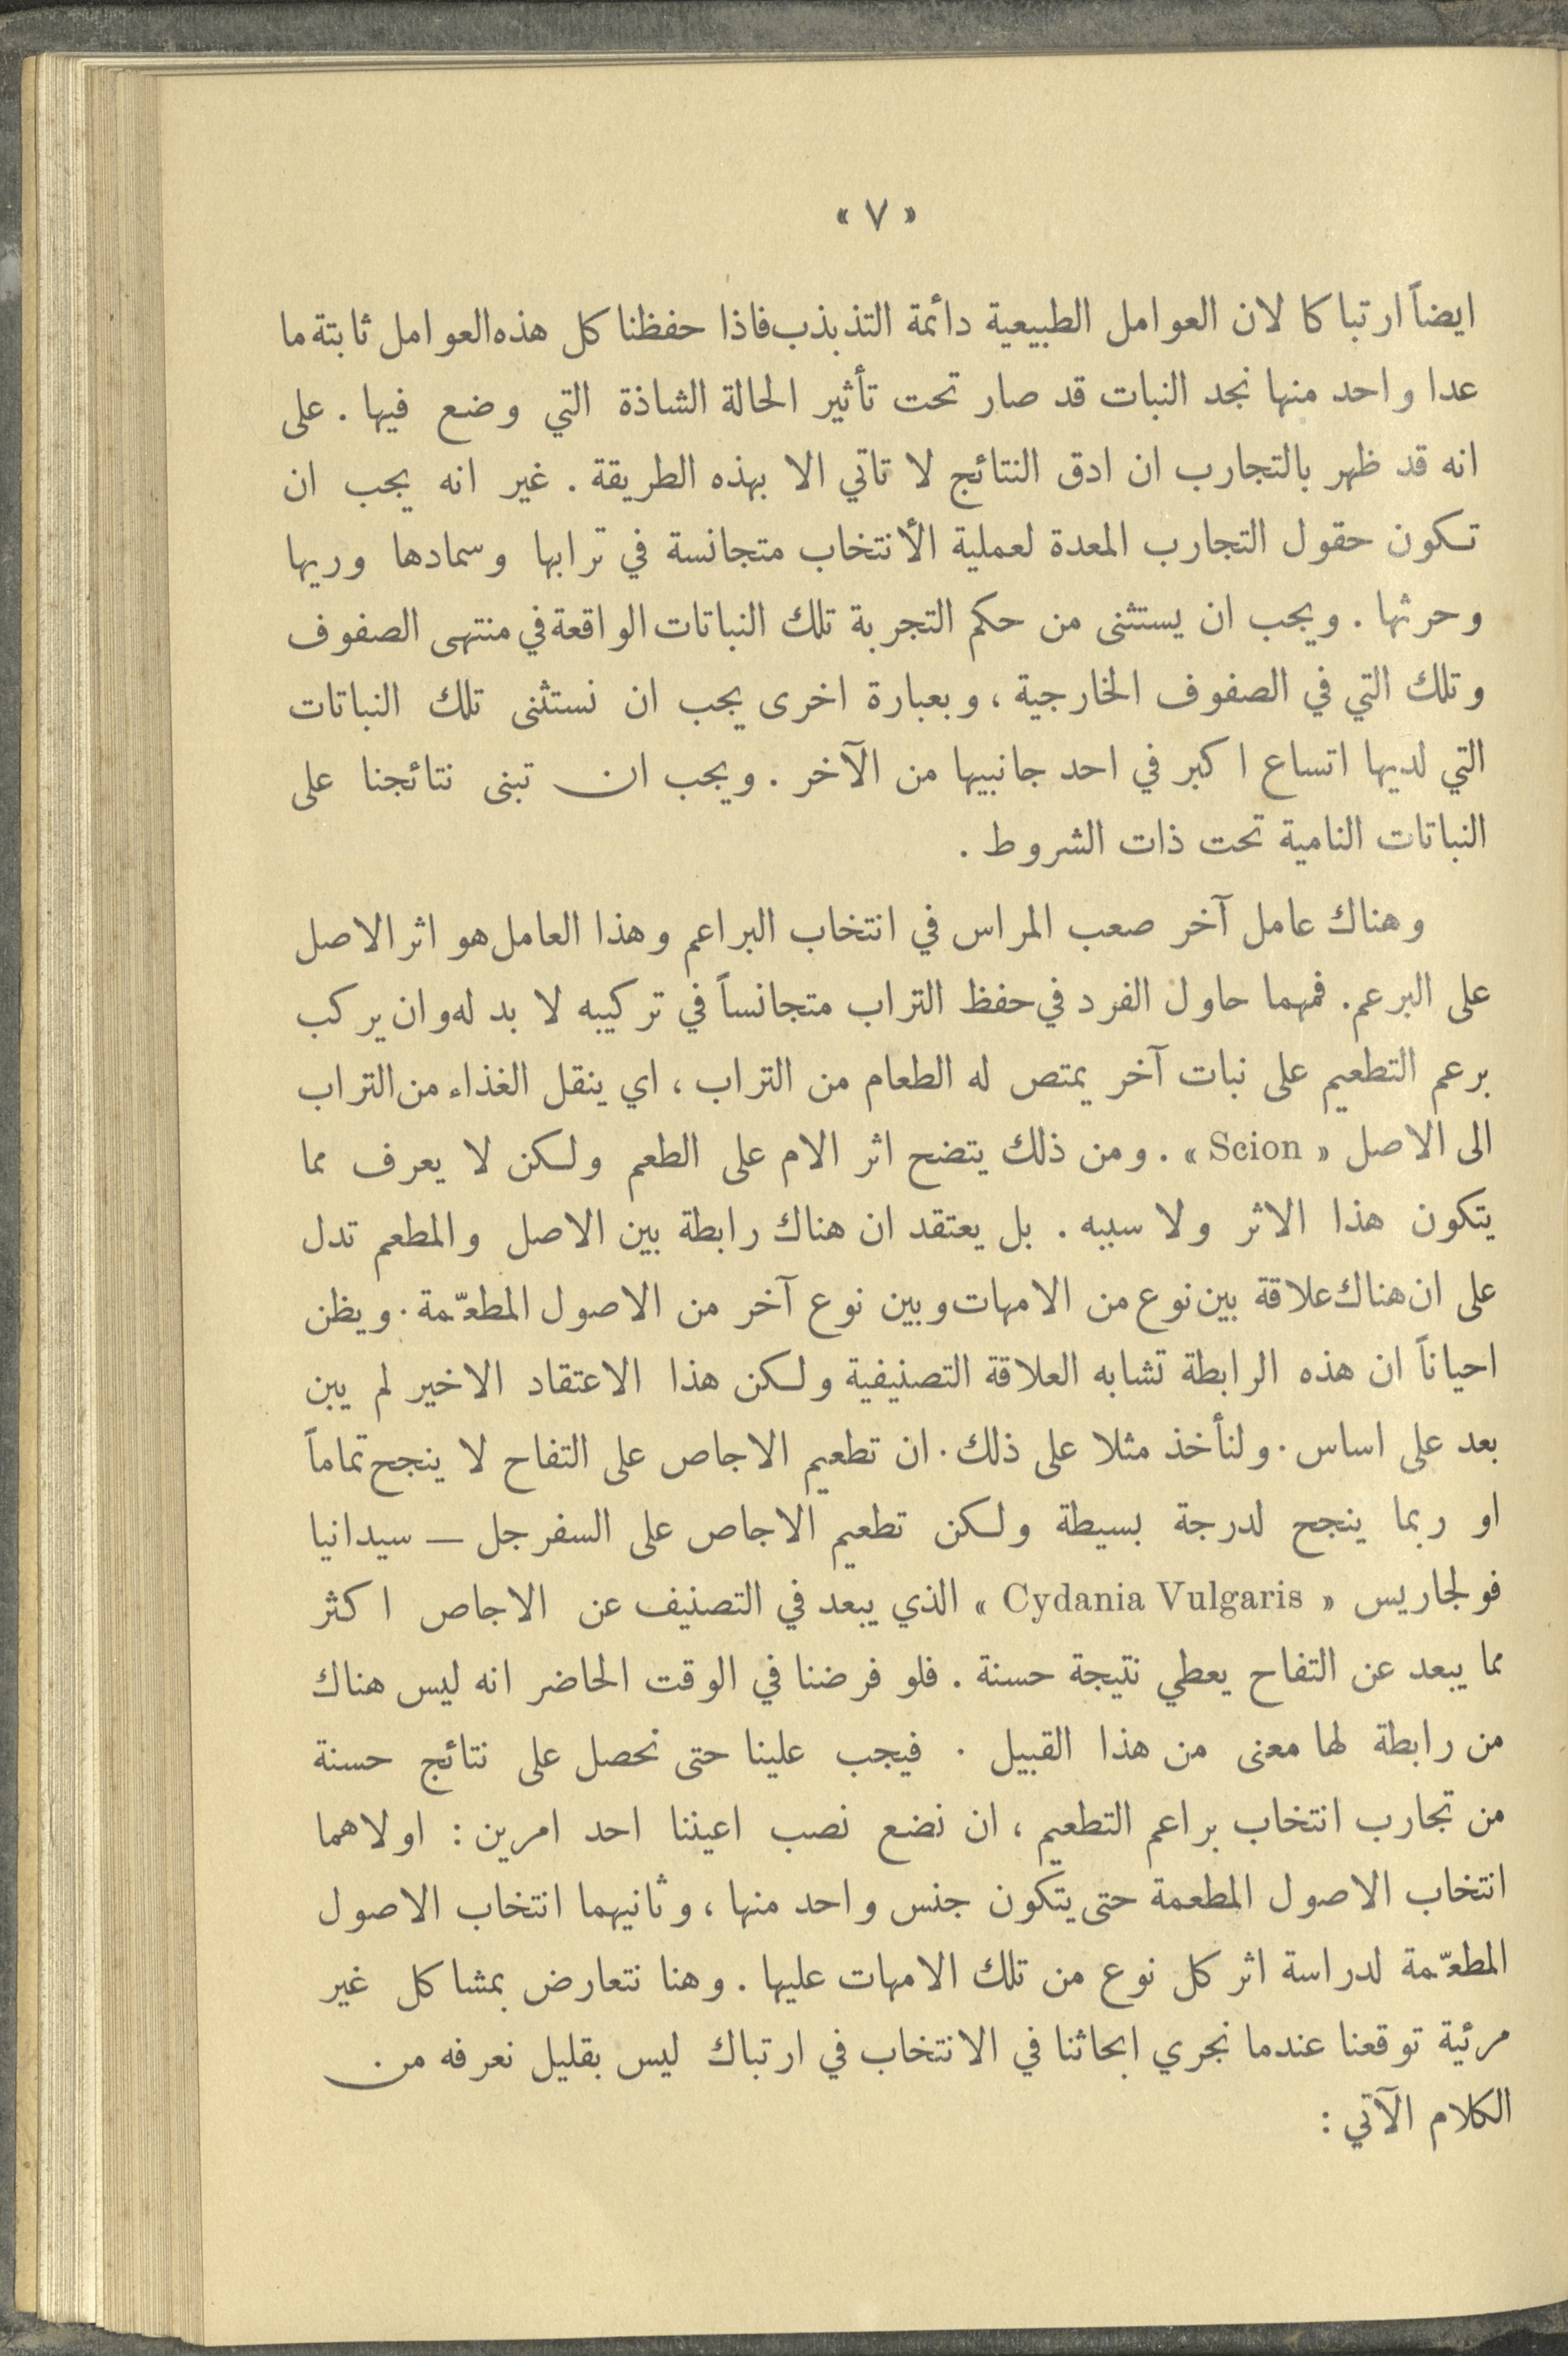 « ٧ »
ايضاً ارتباكا لان العوامل الطبيعية دائمة التذبذب فاذا حفظنا كل هذه العوامل ثابتة ما
عدا واحد منها نجد النبات قد صار تحت تأثير الحالة الشاذة التي وضع فيها . على
انه قد ظهر بالتجارب ان ادق النتائج لا تاتي الا بهذه الطريقة . غير انه يجب ان
تكون حقول التجارب المعدة لعملية الأنتخاب متجانسة في ترابها وسمادها وريها
وحرثها . ويجب ان يستثنى من حكم التجربة تلك النباتات الواقعة في منتهى الصفوف
وتلك التي في الصفوف الخارجية ، وبعبارة اخرى يجب ان نستثنى تلك النباتات
التي لديها اتساع اكبر في احد جانبيها من الآخر . ويجب ان تبنى نتائجنا على
النباتات النامية تحت ذات الشروط .
وهناك عامل آخر صعب المراس في انتخاب البراعم وهذا العامل هو اثر الاصل
على البرعم . فمهما حاول الفرد في حفظ التراب متجانساً في تركيبه لا بد له وان يركب
برعم التطعيم على نبات آخر يمتص له الطعام من التراب ، اي ينقل الغذاء من التراب
الى الاصل « Scion » . ومن ذلك يتضح اثر الام على الطعم ولكن لا يعرف مما
يتكون هذا الاثر ولا سببه . بل يعتقد ان هناك رابطة بين الاصل والمطعم تدل
على ان هناك علاقة بين نوع من الامهات وبين نوع آخر من الاصول المطعّمة . ويظن
احياناً ان هذه الرابطة تشابه العلاقة التصنيفية ولكن هذا الاعتقاد الاخير لم يبن
بعد على اساس . ولنأخذ مثلا على ذلك . ان تطعيم الاجاص على التفاح لا ينجح تماماً
او ربما ينجح لدرجة بسيطة ولكن تطعيم الاجاص على السفرجل — سيدانيا
فولجاريس « Cydania Vulgaris » الذي يبعد في التصنيف عن الاجاص اكثر
مما يبعد عن التفاح يعطي نتيجة حسنة . فلو فرضنا في الوقت الحاضر انه ليس هناك
من رابطة لها معنى من هذا القبيل . فيجب علينا حتى نحصل على نتائج حسنة
من تجارب انتخاب براعم التطعيم ، ان نضع نصب اعيننا احد امرين : اولاهما
انتخاب الاصول المطعمة حتى يتكون جنس واحد منها ، وثانيهما انتخاب الاصول
المطعّمة لدراسة اثر كل نوع من تلك الامهات عليها . وهنا نتعارض بمشاكل غير
مرئية توقعنا عندما نجري ابحاثنا في الانتخاب في ارتباك ليس بقليل نعرفه من
الكلام الآتي :